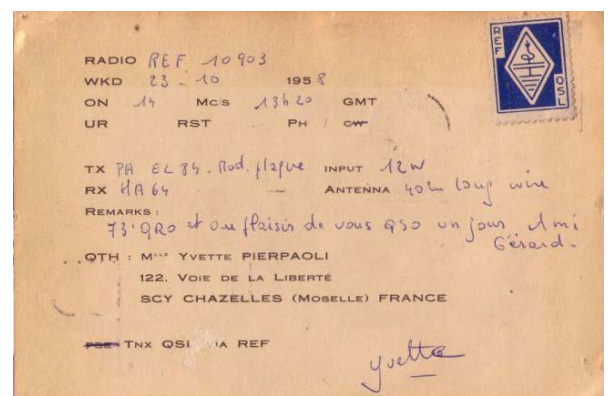 REF
QSL
RADIO REF 10903
WKD 23-10 1958
ON 14 Mcs 13h20 GMT
UR RST PH CW
TX PA EL84 - Mod. plaque INPUT 12W
RX HA64 ANTENNA 40m long wire
REMARKS :
73' QRO et au plaisir de vous QSO un jour Ami
Gérard.
QTH : Mlle YVETTE PIERPAOLI
122. VOIE DE LA LIBERTÉ
SCY CHAZELLES (MOSELLE) FRANCE
PSE TNX QSL VIA REF
yvette